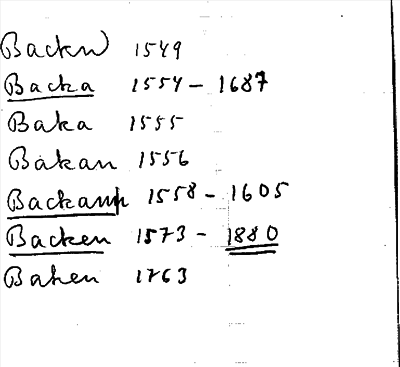 Backn 1549
Backa 1554 - 1687
Baka 1555
Bakan 1556
Backann 1558 - 1605
Backen 1573 - 1880
Baken 1763